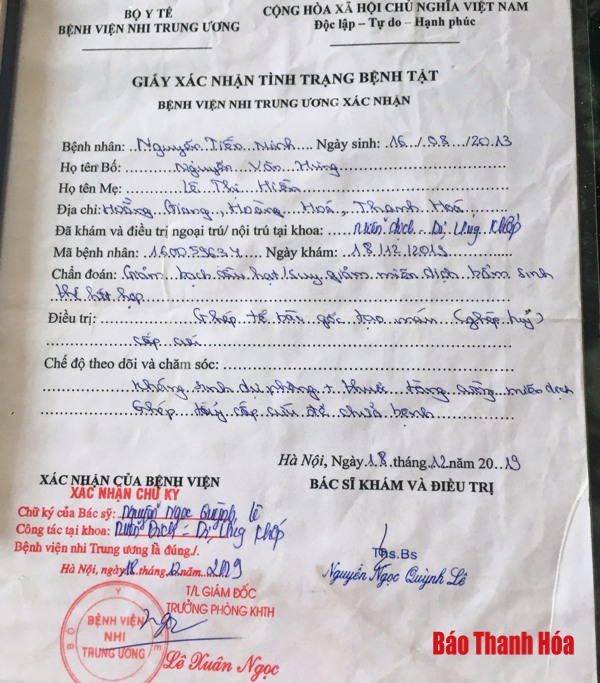 BỘ Y TẾ
BỆNH VIỆN NHI TRUNG ƯƠNG
CỘNG HÒA XÃ HỘI CHỦ NGHĨA VIỆT NAM
Độc lập – Tự do – Hạnh phúc
GIẤY XÁC NHẬN TÌNH TRẠNG BỆNH TẬT
BỆNH VIỆN NHI TRUNG ƯƠNG XÁC NHẬN
Bệnh nhân: Nguyễn Tiến Minh Ngày sinh: 16/08/2013
Họ tên Bố: Nguyễn Văn Hùng
Họ tên Mẹ: Lê Thị Hiền
Địa chỉ: Hoằng Giang, Hoằng Hoá, Thanh Hoá
Đã khám và điều trị ngoại trú/ nội trú tại khoa: Miễn dịch - Dị ứng khớp
Mã bệnh nhân: Ngày khám: 18/12/2019
Chẩn đoán: Giảm bạch cầu hạt/suy giảm miễn dịch bẩm sinh
thể hỗn hợp
Điều trị: Ghép tế bào gốc tạo máu (ghép tuỷ)
cấp cứu
Chế độ theo dõi và chăm sóc:
Kháng sinh dự phòng + thuốc tăng cường miễn dịch
Ghép tủy cấp cứu để chữa bệnh
Hà Nội, Ngày 18 tháng 12 năm 2019
XÁC NHẬN CỦA BỆNH VIỆN
BÁC SĨ KHÁM VÀ ĐIỀU TRỊ
XÁC NHẬN CHỮ KÝ
Chữ ký của Bác sỹ: Nguyễn Ngọc Quỳnh Lê
Công tác tại khoa: Miễn Dịch - Dị ứng khớp
Bệnh viện nhi Trung ương là đúng./.
Hà Nội, ngày 18 tháng 12 năm 2019
Ths.Bs
Nguyễn Ngọc Quỳnh Lê
T/L GIÁM ĐỐC
TRƯỞNG PHÒNG KHTH
BỆNH VIỆN
NHI
TRUNG ƯƠNG
Lê Xuân Ngọc
Báo Thanh Hóa